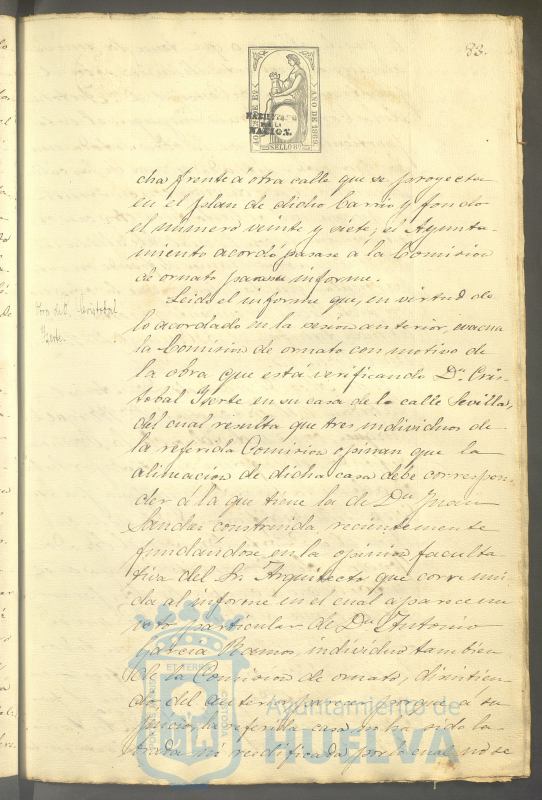 83.
AÑO DE 1869
SELLO 8º
HABILITADO
POR LA
NACION.
cha frente á otra calle que se proyecta
en el plan de dicho barrio y fondo
el número veinte y siete; el Ayunta-
miento acordó pasase á la Comision
de ornato para su informe.
Leido el informe que, en virtud de
lo acordado en la sesion anterior, evacua
la Comision de ornato con motivo de
la obra que está verificando Dn. Cris-
tobal Yerte en su casa de la calle Sevilla,
del cual resulta que tres individuos de
la referida Comision opinan que la
alineacion de dicha casa debe correspon-
der á la que tiene la de Dn. Juan
construida recientemente
fundándose en la opinion faculta-
tiva del Sr. Arquitecto que corre uni-
da al informe en el cual aparece un
voto particular de Dn. Antonio
Garcia Ramos, individuo tambien
de la Comision de ornato, disintien-
do del anterior parecer porque á su
juicio, la referida casa no ha sido la-
brada ni reedificada por lo cual no se
Cristobal
Yerte.
Ayuntamiento de
HUELVA